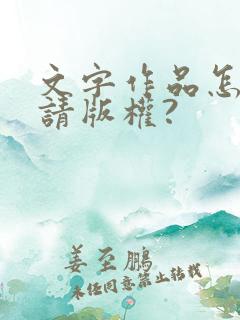 文字作品怎
請版權？
姜至鵬
未任同意禁止轉載